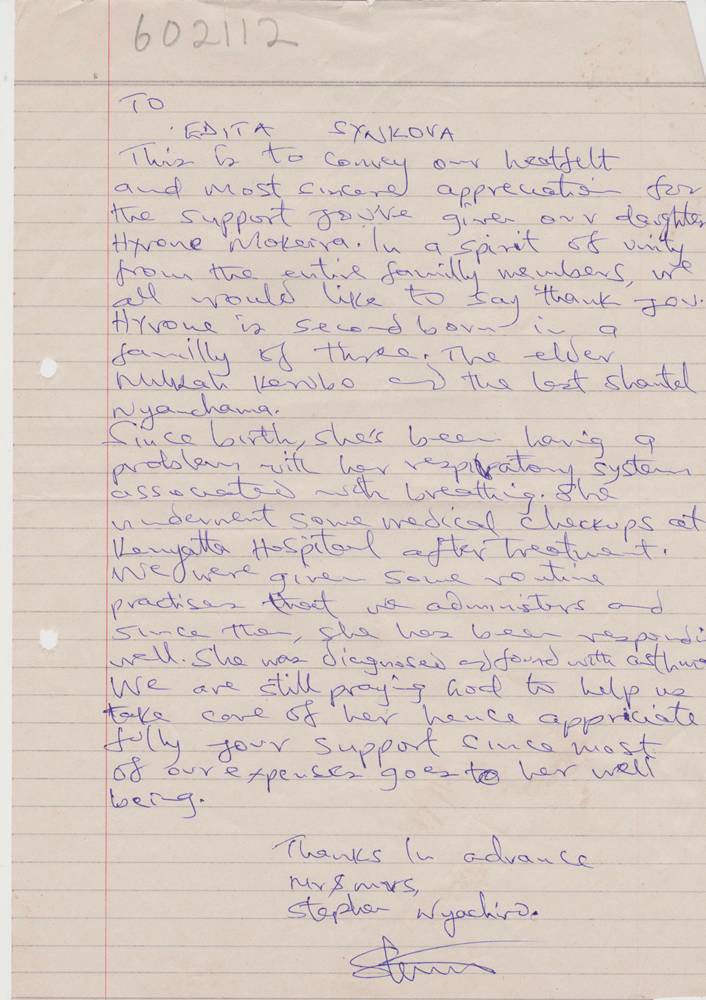 602112
TO
EDITA SYNKOVA
This is to convey our heatfelt
and most sincere appreciation for
the support you've given our daughter
Hyvone Mokeira. In a spirit of unity
from the entire familly members, we
all would like to say thank you.
Hyvone is second born in a
familly of three. The elder
Milkah Kerubo and the last Shantel
Nyanchama.
Since birth, she's been having a
problem with her respiratory system
associated with breathing. She
underwent some medical checkups at
Kenyatta Hospital after treatment.
We were given some routine
practises that we administers and
since then, she has been respondi
well. She was diagnosed and found with asthma
We are still praying God to help us
take care of her hence appriciate
fully your support since most
of our expenses goes to her well
being.
Thanks In advance
Mr & mrs,
Stephen Nyachiro.